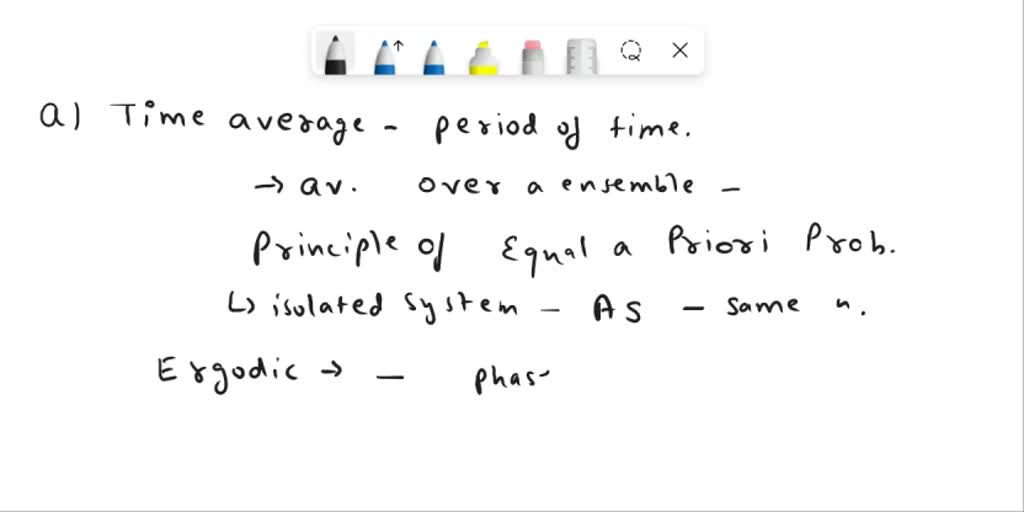 a) Time average - period of time.
→ av. over a ensemble -
Principle of Equal a Priori Prob.
↳ isolated system - AS - same n.
Ergodic → - phas